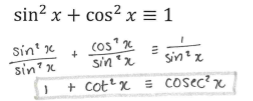 sin² x + cos² x ≡ 1
sin² x / sin² x + cos² x / sin² x ≡ 1 / sin² x
1 + cot² x ≡ cosec² x